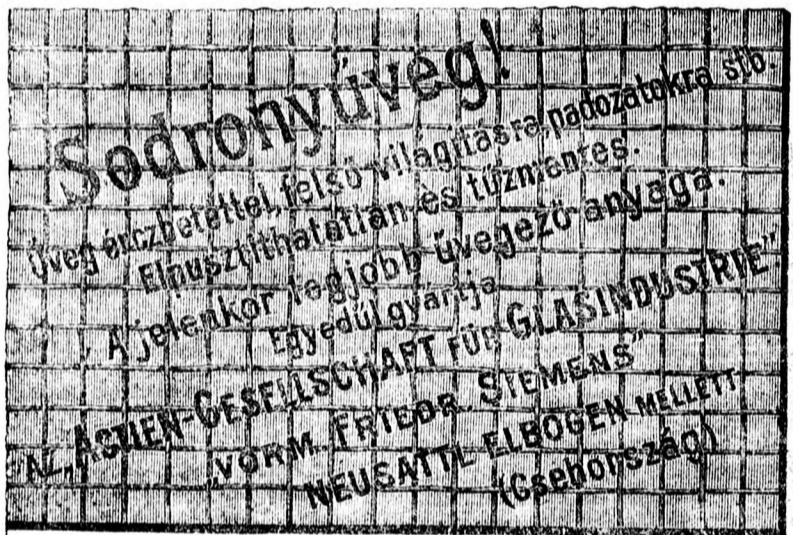 Sodronyüveg!
Üveg érczbetéttel, felső világításra, padozatokra stb.
Elpusztíthatatlan és tűzmentes.
A jelenkor legjobb üvegező anyaga.
Egyedül gyártja
AZ „ACTIEN-GESELLSCHAFT FÜR GLASINDUSTRIE”
„VORM. FRIEDR. SIEMENS”
NEUSATTL ELBOGEN MELLETT
(Csehország)